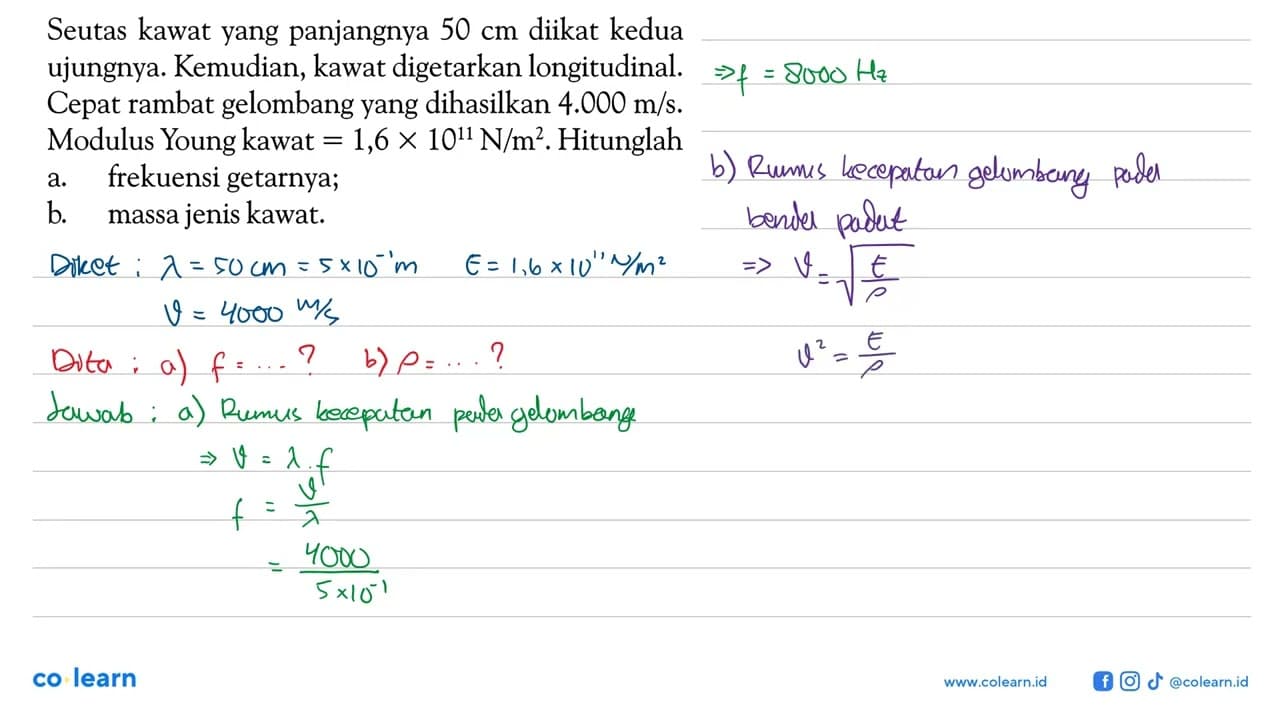 Seutas kawat yang panjangnya 50 cm diikat kedua
ujungnya. Kemudian, kawat digetarkan longitudinal.
Cepat rambat gelombang yang dihasilkan 4.000 m/s.
Modulus Young kawat = 1,6 × 10¹¹ N/m². Hitunglah
a. frekuensi getarnya;
b. massa jenis kawat.
Diket : λ = 50 cm = 5 × 10⁻¹ m E = 1,6 × 10¹¹ N/m²
v = 4000 m/s
Dita : a) f = ... ? b) ρ = ... ?
Jawab : a) Rumus kecepatan pada gelombang
⇒ v = λ . f
f = v/λ
= 4000/5×10⁻¹
⇒ f = 8000 Hz
b) Rumus kecepatan gelombang pada
benda padat
=> v = √(E/ρ)
v² = E/ρ
co learn
www.colearn.id
@colearn.id